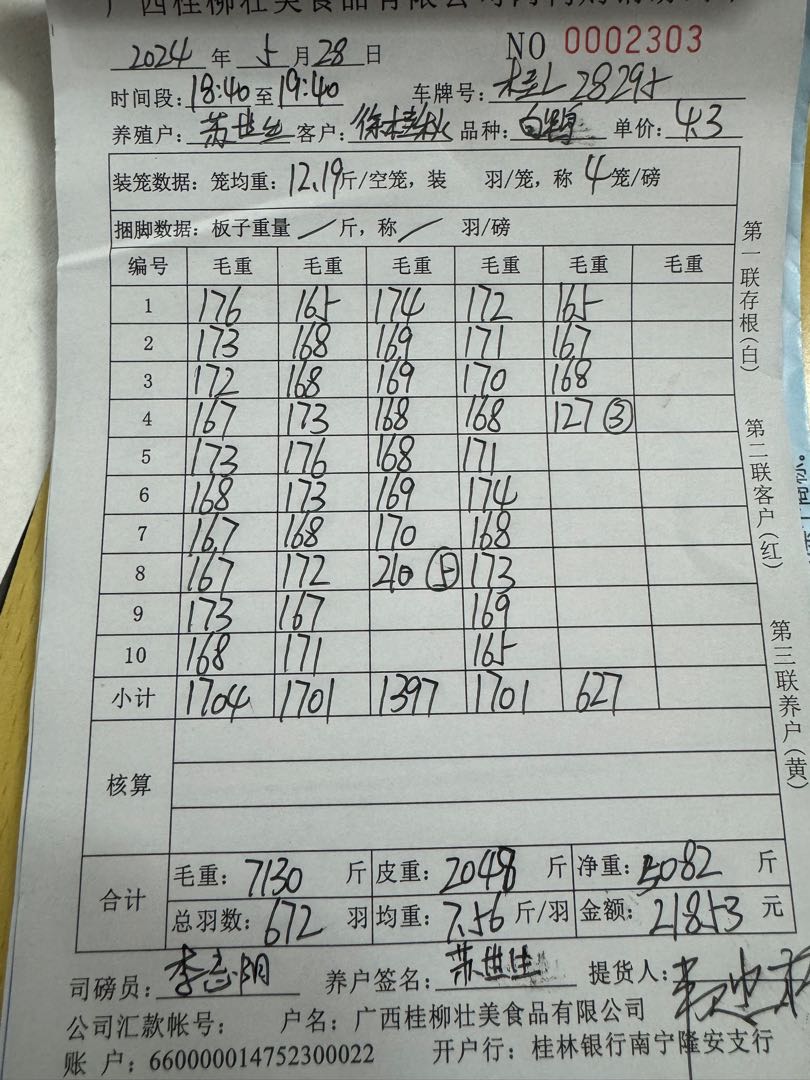 广西桂柳壮美食品有限公司
2024 年 5 月 28 日 NO 0002303
时间段: 18:40 至 19:40 车牌号: 桂L28295
养殖户: 苏世生 客户: 徐桂秋 品种: 单价: 4.3
装笼数据: 笼均重: 12.19 斤/空笼, 装 羽/笼, 称 4 笼/磅
捆脚数据: 板子重量 / 斤, 称 / 羽/磅
编号 毛重 毛重 毛重 毛重 毛重 毛重
1 176 165 174 172 165
2 173 168 169 171 167
3 172 168 169 170 168
4 167 173 168 168 127 ③
5 173 176 168 171
6 168 173 169 174
7 167 168 170 168
8 167 172 210 ⑤ 173
9 173 167 169
10 168 171 165
小计 1704 1701 1397 1701 627
核算
合计
毛重: 7130 斤 皮重: 2048 斤 净重: 5082 斤
总羽数: 672 羽 均重: 7.56 斤/羽 金额: 21853 元
司磅员: 李志明 养户签名: 提货人:
公司汇款帐号: 户名: 广西桂柳壮美食品有限公司
账 户: 660000014752300022 开户行: 桂林银行南宁隆安支行
第一联存根(白)
第二联客户(红)
第三联养户(黄)